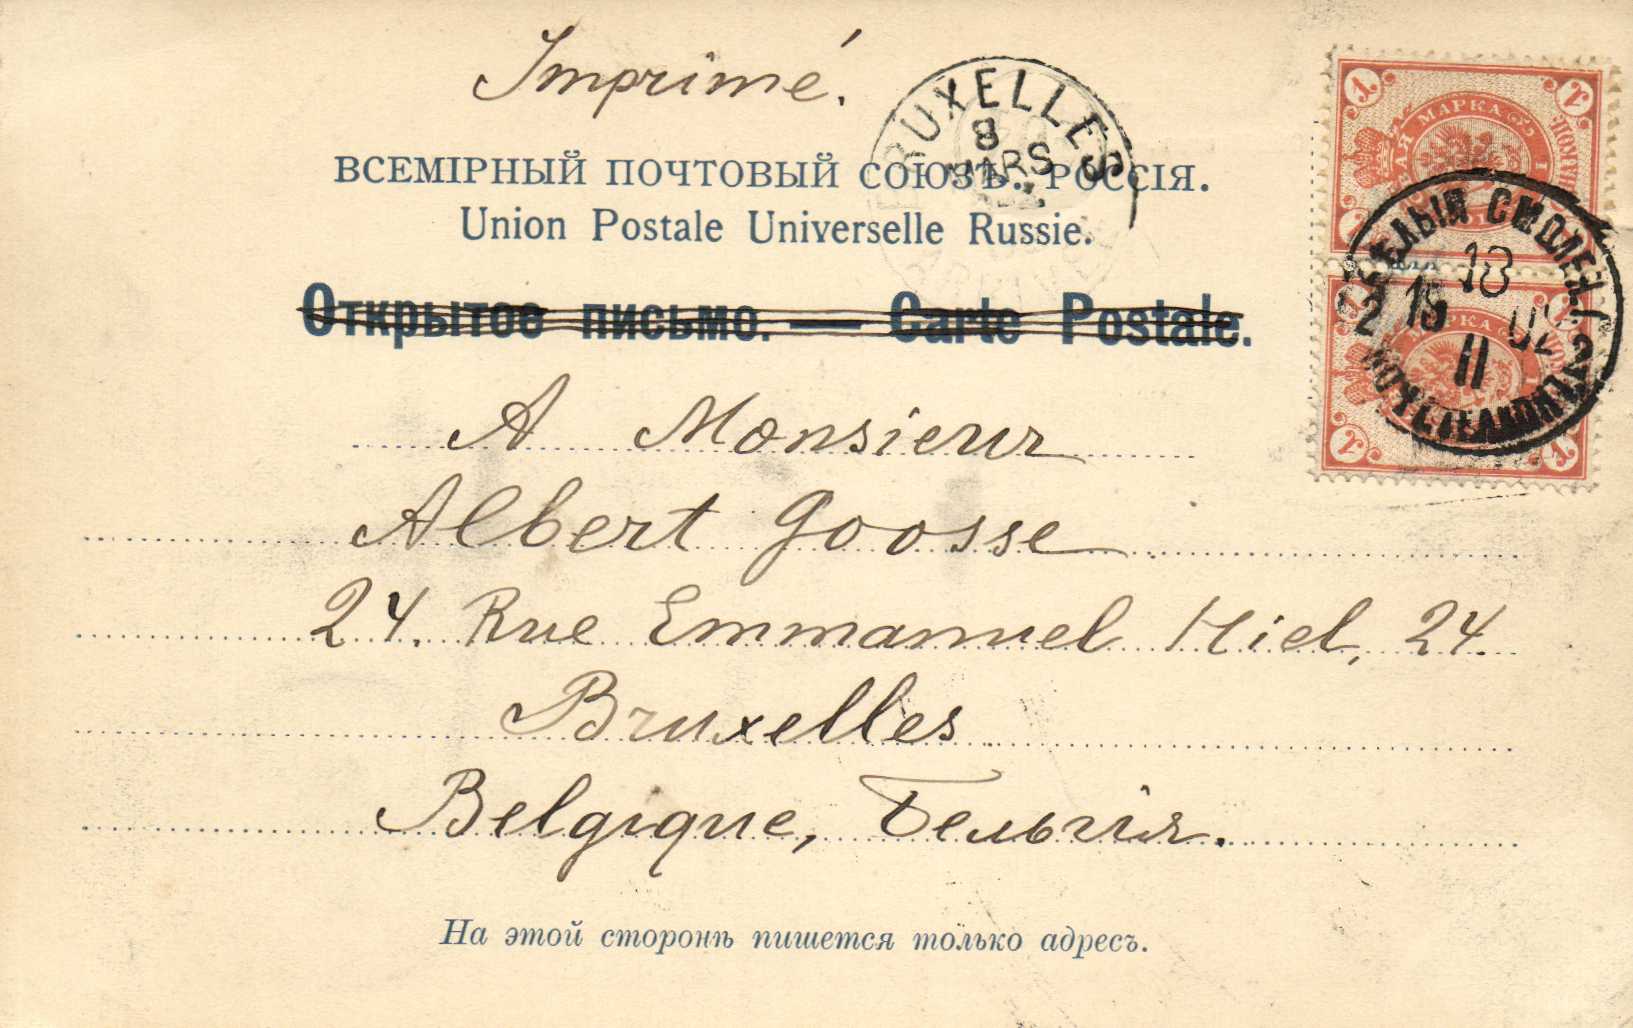 Imprimé.
BRUXELLES
8
MARS
ВСЕМІРНЫЙ ПОЧТОВЫЙ СОЮЗЪ. РОССІЯ.
Union Postale Universelle Russie.
Открытое письмо. — Carte Postale.
A Monsieur
Albert Goosse
24. Rue Emmanuel Hiel, 24.
Bruxelles
Belgique, Бельгія.
На этой сторонѣ пишется только адресъ.
1 1
МАРКА
1
18
19 02
II
2 2
МАРКА
1 1